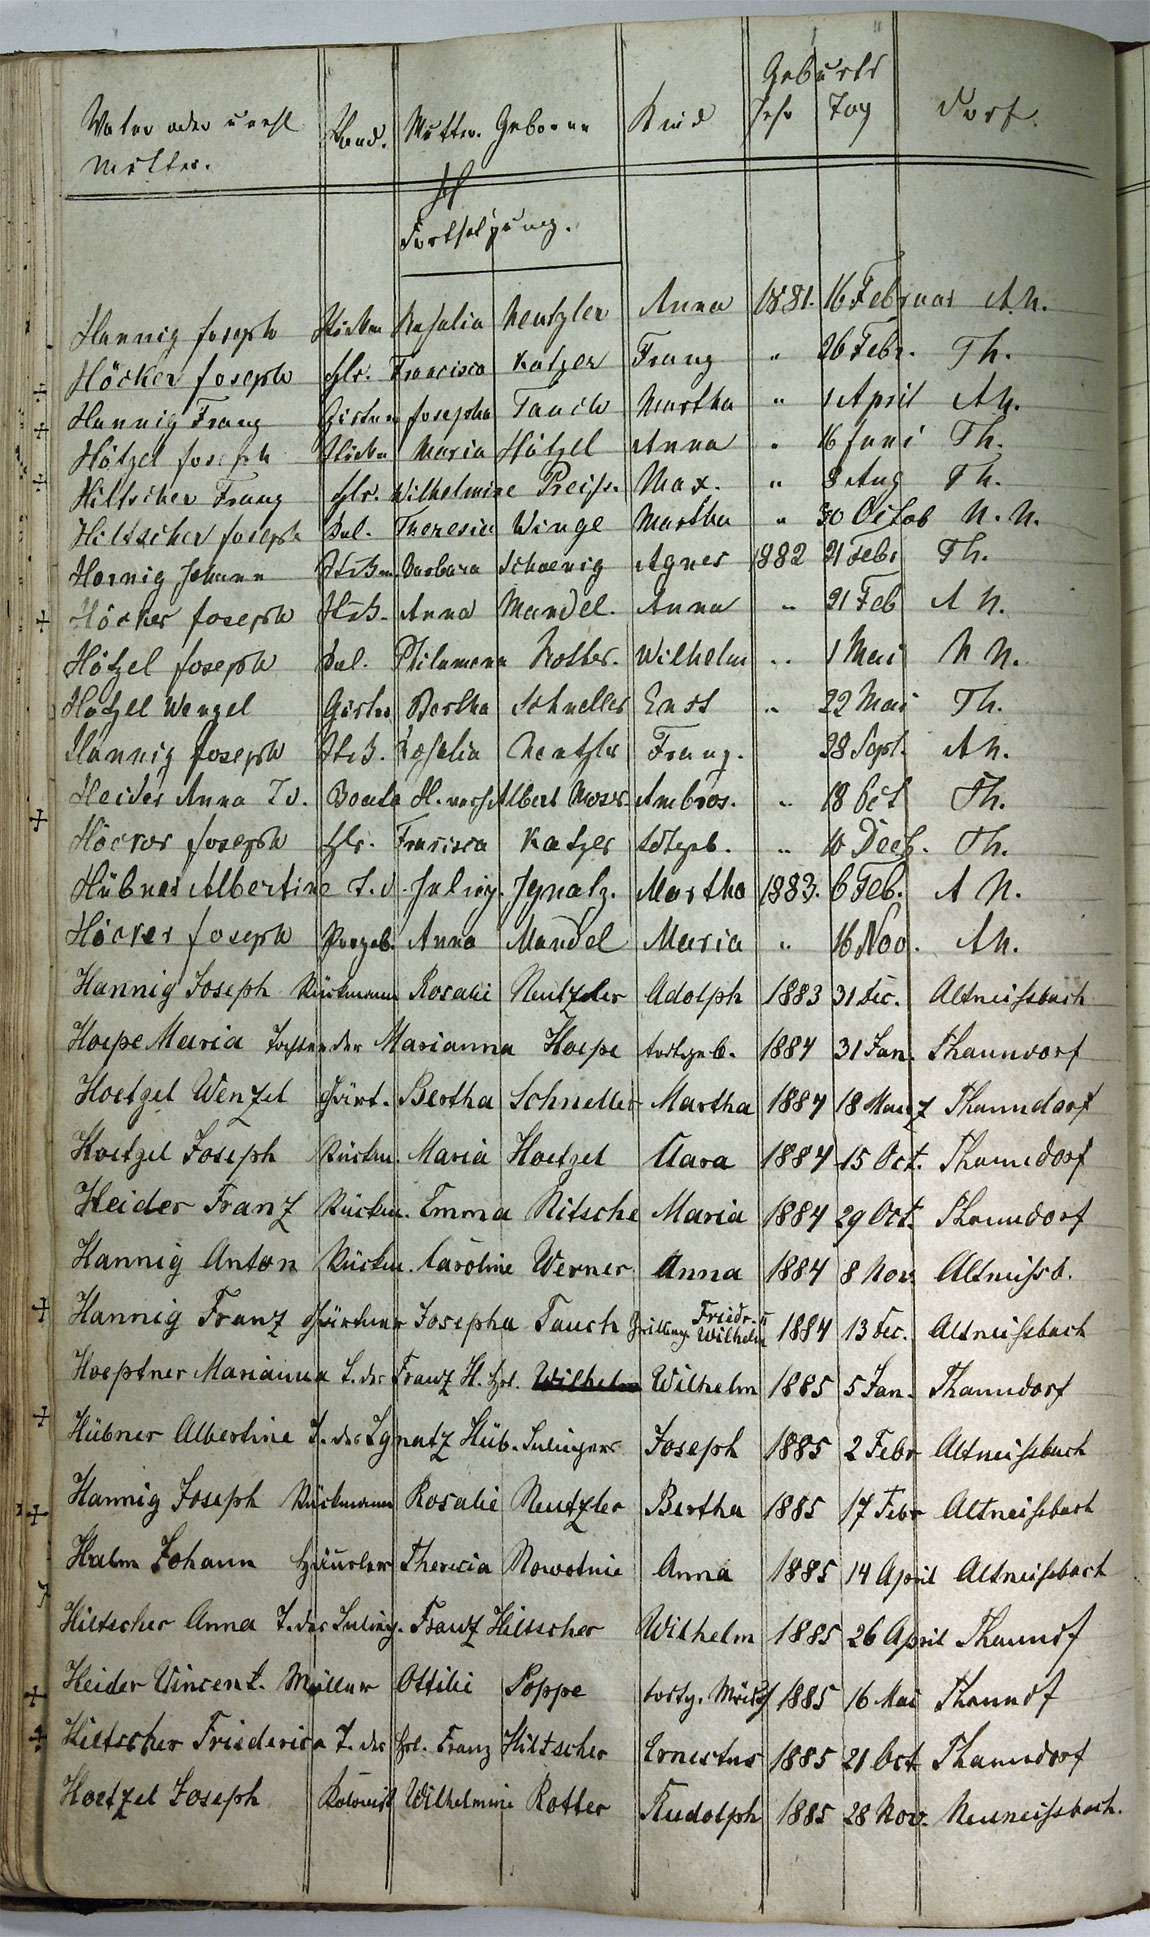 Geburts
Vater oder unehl Stand. Mutter. Geborene Kind Jahr Tag Dorf.
Mutter.
H
Fortsetzung.
Hannig Joseph Rosalia Neutzler Anna 1881. 16 Februar A. N.
Höcker Joseph Hlr. Francisca Katzer Franz " 26 Febr. Th.
Hannig Franz Gärtner Josepha Tauch Martha " 1 April A N.
Hötzel Joseph Maria Hötzel Anna " 16 Juni Th.
Hiltscher Franz Hlr. Wilhelmine Preiss. Max. " 3 Aug Th.
Hiltscher Joseph Theresia Winge Martha " 30 Octob N. N.
Hornig Johann Barbara Schoenig Agnes 1882 21 Febr Th.
Höcker Joseph Anna Mandel. Anna " 21 Feb A N.
Hötzel Joseph Philomena Rotter. Wilhelm " 1 Mai N N.
Hötzel Wenzel Gärtner Bertha Schneller Ernst " 22 Mai Th.
Hannig Joseph Rosalia Neutzler Franz. 28 Sept. A N.
Heider Anna T. d. H. Albert Moser Ambros. " 18 Oct Th.
Höcker Joseph Hlr. Francisca Katzer todtgeb. " 10 Dech. Th.
Hübner Albertine T. d. Inlieg. Ignatz. Martha 1883. 6 Feb. A N.
Höcker Joseph Anna Mandel Maria " 16 Nov. A N.
Hannig Joseph Stückmann Rosalie Neutzler Adolph 1883 31 Dec. Altneissbach
Hoepe Maria Tochter der Marianna Hoepe todtgeb. 1884 31 Jan. Thanndorf
Hoetzel Wenzel Gärt. Bertha Schneller Martha 1884 18 Maerz Thanndorf
Hoetzel Joseph Stückm. Maria Hoetzel Clara 1884 15 Oct. Thanndorf
Heider Franz Stückm. Emma Nitsche Maria 1884 29 Oct. Thanndorf
Hannig Anton Stückm. Caroline Werner Anna 1884 8 Nov. Altneissb.
Hannig Franz Gärtner Josepha Tauch Zwillinge Friedr. u Wilhelm 1884 13 Dec. Altneissbach
Hoeptner Marianna T. des Franz H. Hsl. Wilhelm Wilhelm 1885 5 Jan. Thanndorf
Hübner Albertine T. des Ignatz Hüb. Inliegers Joseph 1885 2 Febr Altneissbach
Hannig Joseph Stückmann Rosalie Neutzler Bertha 1885 17 Febr Altneissbach
Halm Johann Häusler Theresia Nowotnie Anna 1885 14 April Altneissbach
Hiltscher Anna T. des Inlieg. Franz Hiltscher Wilhelm 1885 26 April Thanndf
Heider Vincent. Müller Ottilie Poppe todtg. Mädch 1885 16 Mai Thanndf
Hiltscher Friederica T. des Hsl. Franz Hiltscher Ernestus 1885 21 Oct Thanndorf
Hoetzel Joseph Kolonist Wilhelmine Rotter Rudolph 1885 28 Nov. Neuneissbach.